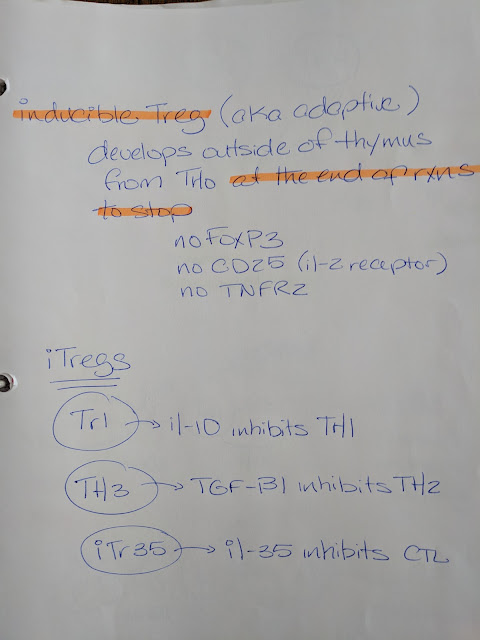 inducible Treg (aka adaptive)
develops outside of thymus
from TH0 at the end of rxns
to stop
no FOXP3
no CD25 (il-2 receptor)
no TNFR2
iTregs
Tr1 → il-10 inhibits TH1
TH3 → TGF-B1 inhibits TH2
iTr35 → il-35 inhibits CTL